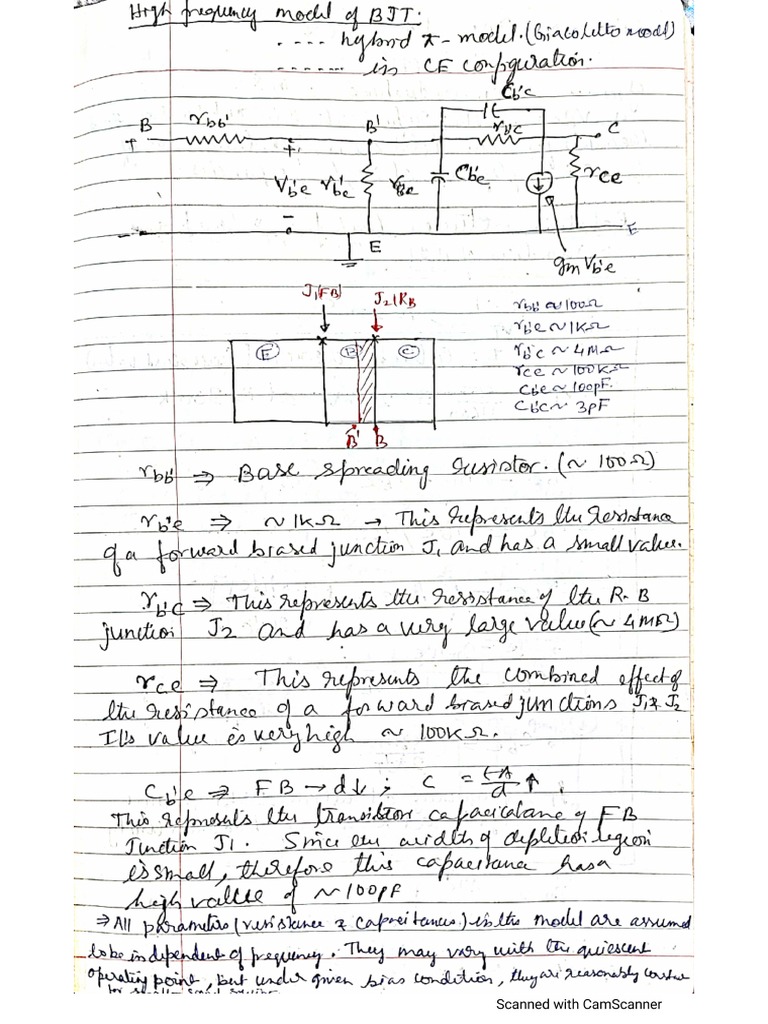 High frequency model of BJT:
.... hybrid π-model. (Giacoletto model)
....... in CE configuration.
Cb'c
B rbb' B' rb'c C
+ +
Vb'e rb'e Cb'e rce
- -
E E
gm Vb'e
J1(FB) J2(RB
E B C
B' B
rbb' ~ 100Ω
rb'e ~ 1KΩ
rb'c ~ 4MΩ
rce ~ 100KΩ
Cb'e ~ 100pF.
Cb'c ~ 3pF
rbb' ⇒ Base spreading resistor. (~ 100Ω)
rb'e ⇒ ~1KΩ → This represents the resistance
of a forward biased junction J1 and has a small value.
rb'c ⇒ This represents the resistance of the R.B
junction J2 and has a very large value (~ 4MΩ)
rce ⇒ This represents the combined effect of
the resistance of a forward biased junctions J1 & J2
It's value is very high ~ 100KΩ.
Cb'e ⇒ FB → d↓ ; C = ϵA/d ↑ .
This represents the transistor capacitance of FB
Junction J1. Since the width of depletion region
is small, therefore this capacitance has a
high value of ~100pF.
⇒ All parameters (resistance & capacitances) in the model are assumed
to be independent of frequency. They may vary with the quiescent
operating point, but under given bias condition, they are reasonably constant
for small
Scanned with CamScanner